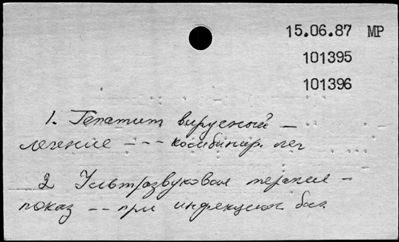 15.06.87 МР
101395
101396
1. Гепатит вирусный –
лечение --- комбинир. леч
2 Ультразвуковая терапия –
показ -- при инфекцион бол.